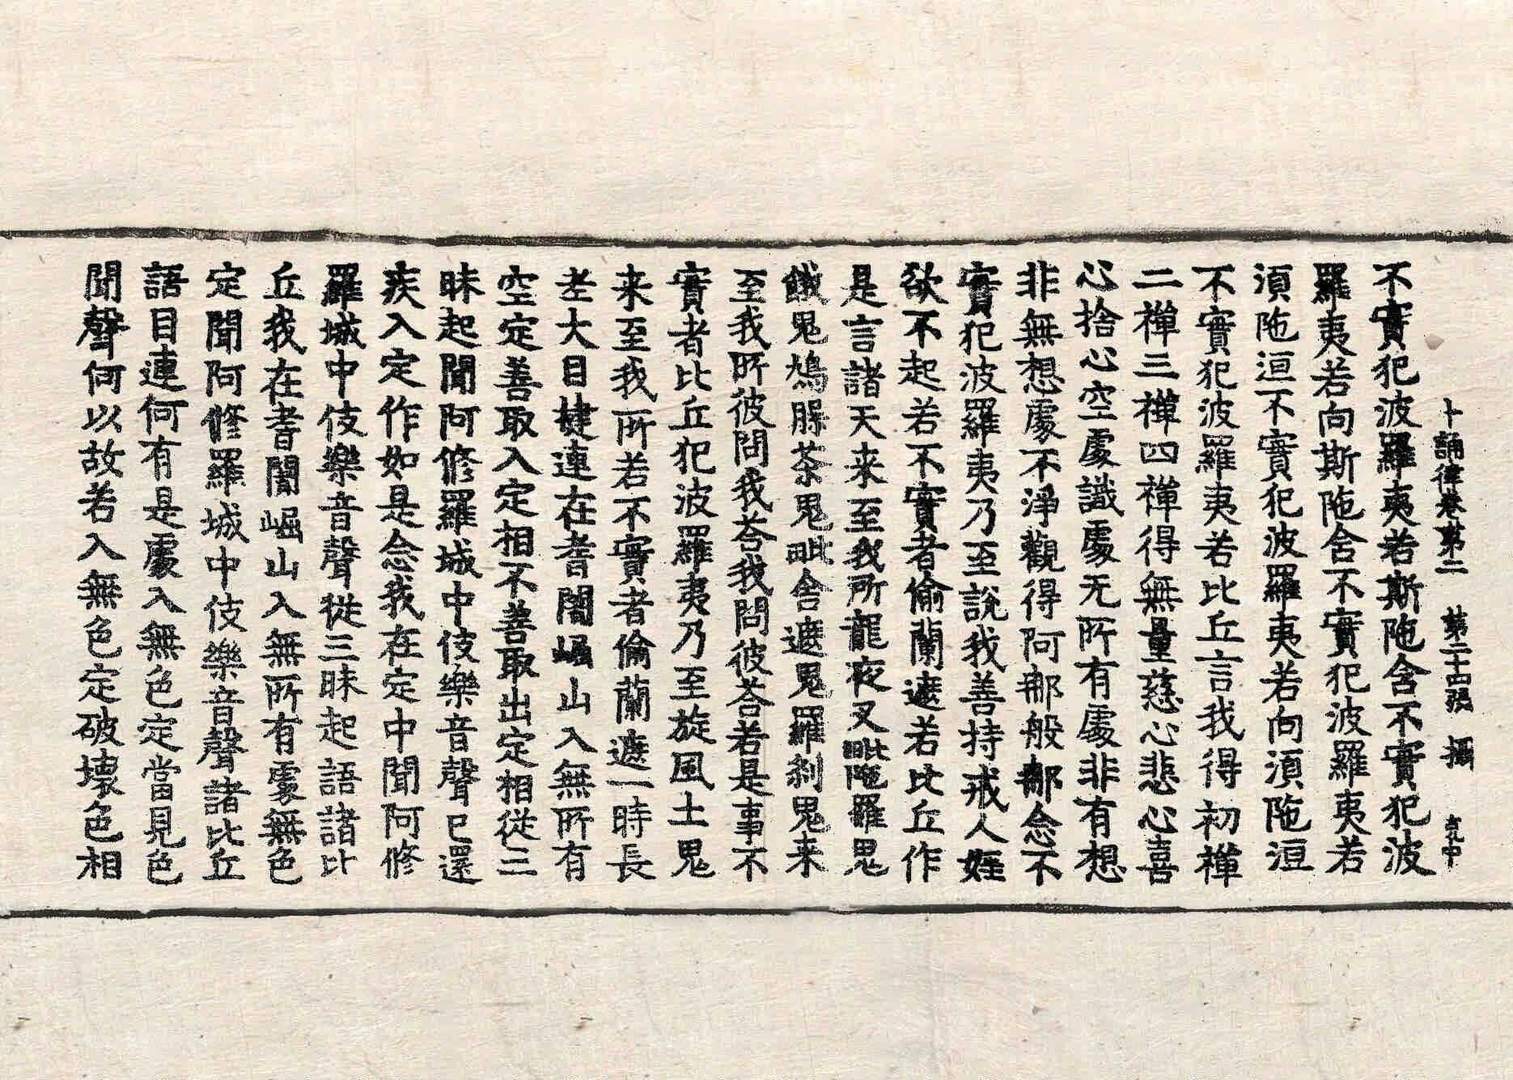 十誦律卷苐二 苐二十四張 攝
不實犯波羅夷若斯陁含不實犯波
羅夷若向斯陁含不實犯波羅夷若
湏陁洹不實犯波羅夷若向湏陁洹
不實犯波羅夷若比丘言我得初禪
二禪三禪四禪得無量慈心悲心喜
心捨心空處識處无所有處非有想
非無想處不淨觀得阿那般那念不
實犯波羅夷乃至說我善持戒人婬
欲不起若不實者偷蘭遮若比丘作
是言諸天来至我所龍夜叉毗陁羅鬼
餓鬼鳩脲茶鬼毗舍遮鬼羅剎鬼来
至我所彼問我荅我問彼荅若是事不
實者比丘犯波羅夷乃至旋風土鬼
来至我所若不實者偷蘭遮一時長
老大目揵連在耆闍崛山入無所有
空定善取入定相不善取出定相從三
昧起聞阿修羅城中伎樂音聲已還
疾入定作如是念我在定中聞阿修
羅城中伎樂音聲從三昧起語諸比
丘我在耆闍崛山入無所有處無色
定聞阿修羅城中伎樂音聲諸比丘
語目連何有是處入無色定當見色
聞聲何以故若入無色定破壞色相